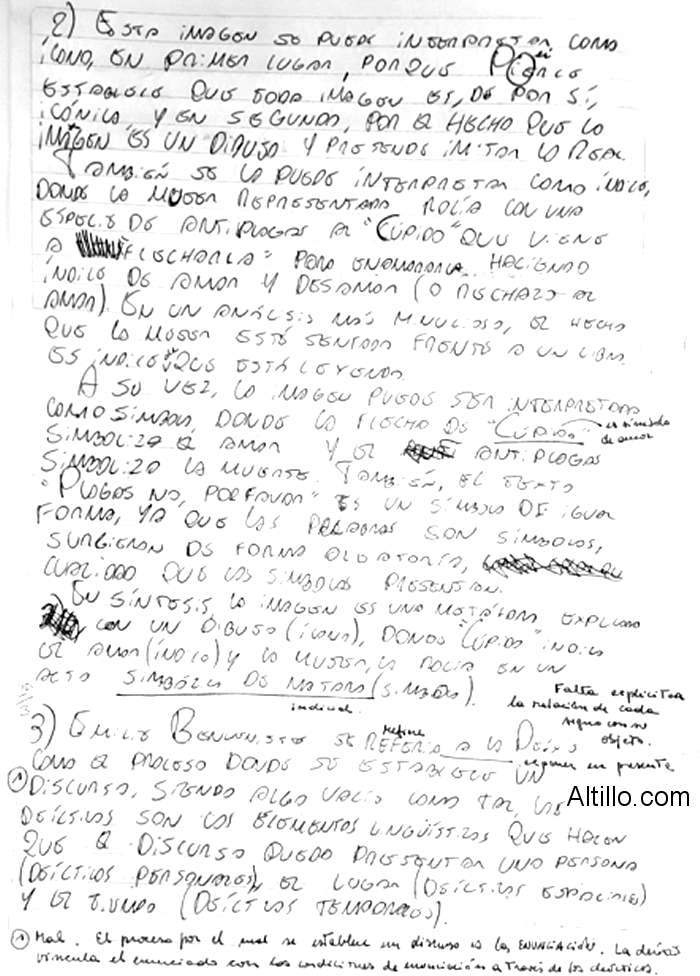 2) ESTA IMAGEN SE PUEDE INTERPRETAR COMO
ÍCONO, EN PRIMER LUGAR, PORQUE Peirce
ESTABLECE QUE TODA IMAGEN ES, DE POR SÍ,
ICÓNICA, Y EN SEGUNDA, POR EL HECHO QUE LA
IMAGEN ES UN DIBUJO Y PRETENDE IMITAR LO REAL.
TAMBIÉN SE LA PUEDE INTERPRETAR COMO ÍNDICE,
DONDE LA MUJER REPRESENTADA ROCÍA CON UNA
ESPECIE DE ANTIPLAGAS AL "CUPIDO" QUE VIENE
A "FLECHARLA" PARA ENAMORARLA HACIENDO
ÍNDICE DE AMOR Y DESAMOR (O RECHAZO AL
AMOR). EN UN ANÁLISIS MÁS MINUCIOSO, EL HECHO
QUE LA MUJER ESTÉ SENTADA FRENTE A UN LIBRO
ES ÍNDICE QUE ESTÁ LEYENDO.
A SU VEZ, LA IMAGEN PUEDE SER INTERPRETADA
COMO SÍMBOLO, DONDE LA FLECHA DE "CUPIDO" es símbolo de amor
SIMBOLIZA EL AMOR Y EL ANTIPLAGAS
SIMBOLIZA LA MUERTE. TAMBIÉN, EL TEXTO
"PLAGAS NO, PORFAVOR" ES UN SÍMBOLO DE IGUAL
FORMA, YA QUE LAS PALABRAS SON SÍMBOLOS,
SURGIERON DE FORMA ALEATORIA,
CUALIDAD QUE LOS SÍMBOLOS PRESENTAN.
EN SÍNTESIS, LA IMAGEN ES UNA METÁFORA EXPLICADA
CON UN DIBUJO (ÍCONO), DONDE "CUPIDO" INDICA
EL AMOR (ÍNDICE) Y LA MUJER, LO ROCÍA EN UN
ACTO SIMBÓLICO DE MATARLO (SÍMBOLO).
indicial.
Falta explicitar
la relación de cada
signo con su
objeto.
3) EMILE BENVENISTE SE REFERÍA A LA DEIXIS
refiere
exponer en presente
COMO EL PROCESO DONDE SE ESTABLECE UN
① DISCURSO, SIENDO ALGO VACÍO COMO TAL, LOS
DEÍCTICOS SON LOS ELEMENTOS LINGÜÍSTICOS QUE HACEN
QUE EL DISCURSO PUEDA PRESENTAR UNA PERSONA
(DEÍCTICOS PERSONALES), EL LUGAR (DEÍCTICOS ESPACIALES)
Y EL TIEMPO (DEÍCTICOS TEMPORALES).
Altillo.com
① Mal. El proceso por el cual se establece un discurso es la ENUNCIACIÓN. La deixis
vincula el enunciado con las condiciones de enunciación a través de los deícticos.